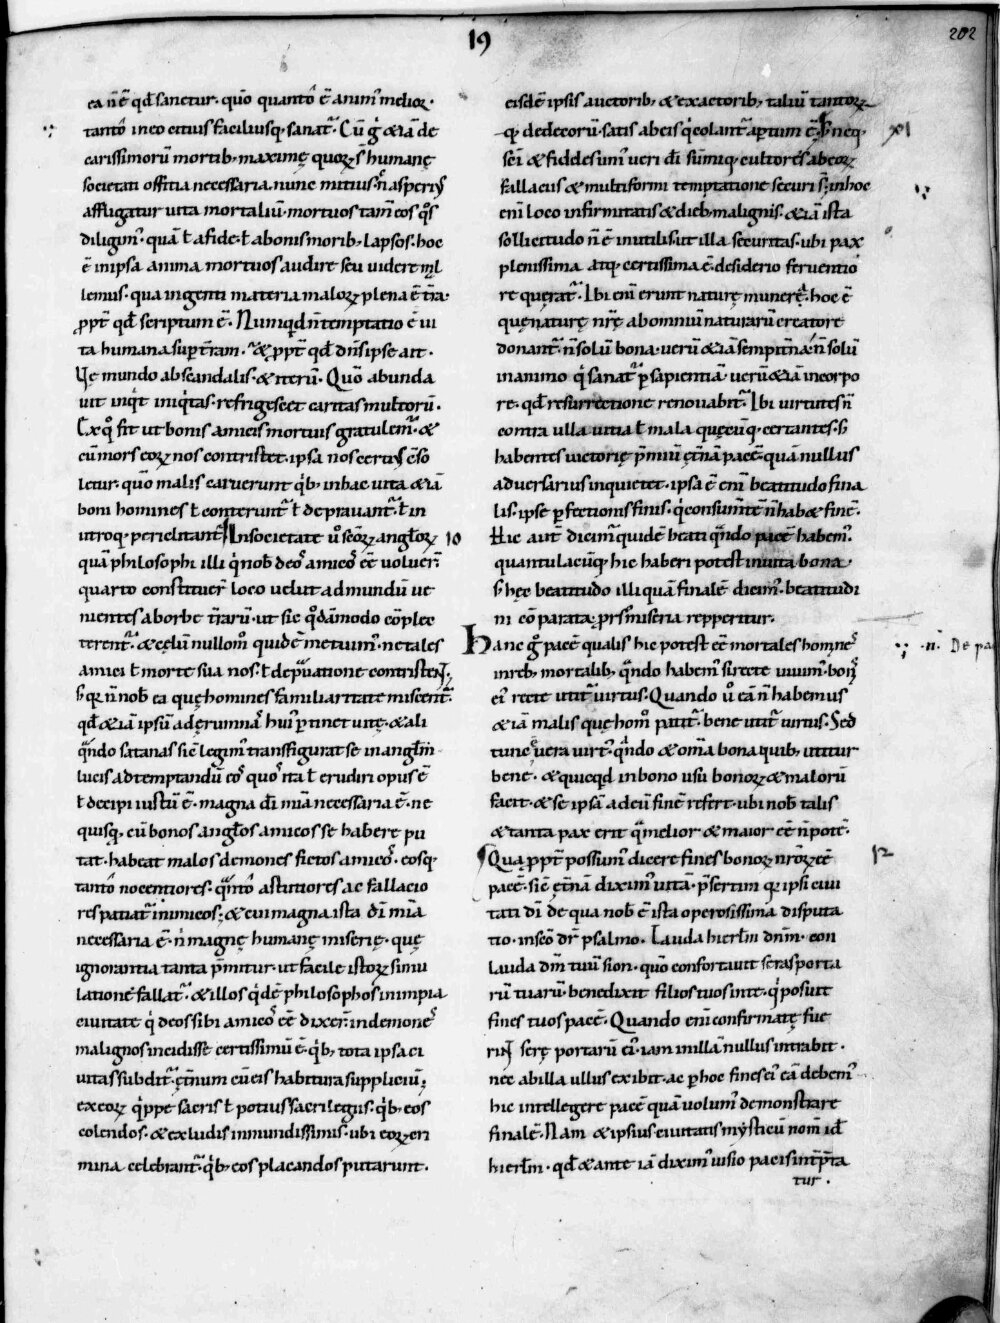 19
202
ea n̄ ē qđ sanetur. quō quanto ē animꝰ melior.
tanto in eo citius faciliusq; sanat᷑. Cū g̊ &iā de
carissimorū mortib; maximę quorꝝ s̄ humanę
societati offitia necessaria. nunc mitius. n̄c asperiꝰ
affligatur uita mortaliū. mortuos tam̄ eos q̊s
diligimꝰ. quā ł a fide. ł a bonis morib; lapsos. hoc
ē in ipsa anima mortuos audire seu uidere mal
lemus. qua ingenti materia malorꝝ plena ē t̄ra.
ꝓpt̄ qđ scriptum ē. Numqđ n̄ temptatio ē ui
ta humana sup t̄ram. & ꝓpt̄ qđ dn̄s ipse ait.
Ve mundo ab scandalis. & iterū. Quō abunda
uit inq̇t iniq̇tas. refrigescet caritas multorū.
Ex q̊ fit ut bonis amicis mortuis gratulemꝰ. &
cū mors eorꝝ nos contristet. ipsa nos certiꝰ conso
letur. quō malis caruerunt q̇b; in hac uita &iā
boni homines ł conterunt᷑ ł deprauant᷑. ł in
utroq; periclitant᷑. In societate ū scōrꝝ angłorꝝ 10
quā philosophi illi q̇ nob̄ deoꝰ amicoꝰ eē voluer̄
quarto constituer̄ loco uelut ad mundū ue
nientes ab orbe t̄rarū. ut sic q̊dāmodo cōplec
terent᷑. & cęlū nullom̊ quidē metuimꝰ. ne tales
amici ł morte sua nos. ł deprauatione contristent.
S; q̄ n̄ nob̄ ea quę homines familiaritate miscent᷑.
qđ &iā ipsū ad ęrumnaꝰ huiꝰ ꝑtinet uitę. & ali
qn̄do satanas sic̄ legimꝰ transfigurat se in angłm̄
lucis ad temptandū eoꝰ quoꝰ ita ł erudiri opus ē
ł decipi iustū ē. magna dī mīa necessaria ē. ne
quisq; cū bonos angłos amicos se habere pu
tat. habeat malos demones fictos amicoꝰ. eosq;
tanto nocentiores. quanto astutiores ac fallacio
res patiat᷑ inimicos. & cui magna ista dī mīa
necessaria ē. n̄ magnę humanę miserię. quę
ignorantia tanta p̄mitur. ut facile istorꝝ simu
latione fallat᷑. & illos q̇dē philosophos in impia
ciuitate q̇ deos sibi amicoꝰ eē dixer̄. in demoneꝰ
malignos incidisse certissimū ē. q̇b; tota ipsa ci
uitas subdit᷑. ęt̄num cū eis habitura suppliciū;
ex eorꝝ q̇ppe sacris ł potius sacrilegiis. q̇b; eos
colendos. & ex ludis inmundissimis. ubi eorꝝ cri
mina celebrant᷑. q̇b; eos placandos putarunt.
eisdē ipsis auctorib; & exactorib; taliū tantorꝝ
q; dedecorū. satis ab eis q̇ colant᷑ aꝑtum ē. S; neq; XI
scī & fideles unīꝰ ueri dī sūmiq; cultores ab eorꝝ
fallaciis & multiformi temptatione securi s̄. in hoc
enī loco infirmitatis & dieb; malignis. &iā ista
sollicitudo n̄ ē inutilis. ut illa securitas. ubi pax
plenissima atq; certissima ē. desiderio feruentio
re querat᷑. Ibi enī erunt naturę muneraꝰ. hoc ē
quę naturę nr̄ę ab omniū naturarū creatore
donant᷑. n̄ solū bona. uerū &iā sempit̄na. n̄ solū
in animo q̇ sanat᷑ ꝑ sapientiā. uerū &iā in corpo
re. qđ resurrectione renouabit᷑. Ibi uirtutes n̄
contra ulla uitia ł mala quęcūq; certantes. s;
habentes uictorię p̄miū ęt̄nā pacē. quā nullus
aduersarius inquietet. ipsa ē enī beatitudo fina
lis. ipse ꝑfectionis finis. q̇ consumt̄e n̄ hab& finē.
Hic aut̄ dicimꝰ quidē beati qn̄do pacē habemꝰ.
quantulacūq; hic haberi potest in uita bona.
s; hęc beatitudo illi quā finalē dicimꝰ. beatitudi
ni cōparata. prsꝰ miseria repperitur.
Hanc g̊ pacē qualis hic potest eē mortales homineꝰ ·n· De pa
in reb; mortalib; qn̄do habemꝰ. si recte uiuimꝰ. bonis
eiꝰ recte utit᷑ uirtus. Quando ū eā n̄ habemus
&iā malis quę homo patit᷑. bene utit᷑ uirtus. Sed
tunc ē uera uirtꝰ. qn̄do & om̄a bona quib; utitur
bene. & quicqđ in bono usu bonorꝝ & malorū
facit. & se ipsā ad eū finē refert. ubi nob̄ talis
& tanta pax erit quā melior & maior eē n̄ potē.
Qua ꝓpt̄ possumꝰ dicere fines bonorꝝ nrōrꝝ eē 12
pacē. sic̄ ęt̄nā diximꝰ uitā. p̄sertim q̄ ipsi ciui
tati dī de qua nob̄ ē ista operosissima disputa
tio. in scō dr̄ psalmo. Lauda hierłm dnm̄. con
lauda dm̄ tuū sion. quō confortauit seras porta
rū tuarū. benedixit filios tuos in te. q̇ posuit
fines tuos pacē. Quando enī confirmatę fue
rint serę portarū eiꝰ. iam in illā nullus intrabit.
nec ab illa ullus exibit. ac ꝑ hoc fines eiꝰ eā debemꝰ
hic intellegere pacē quā uolumꝰ demonstrare
finalē. Nam & ipsius ciuitatis mysticū nom̄ id ē
hierłm. qđ & ante iā diximꝰ uisio pacis int̄p̄ta
tur.